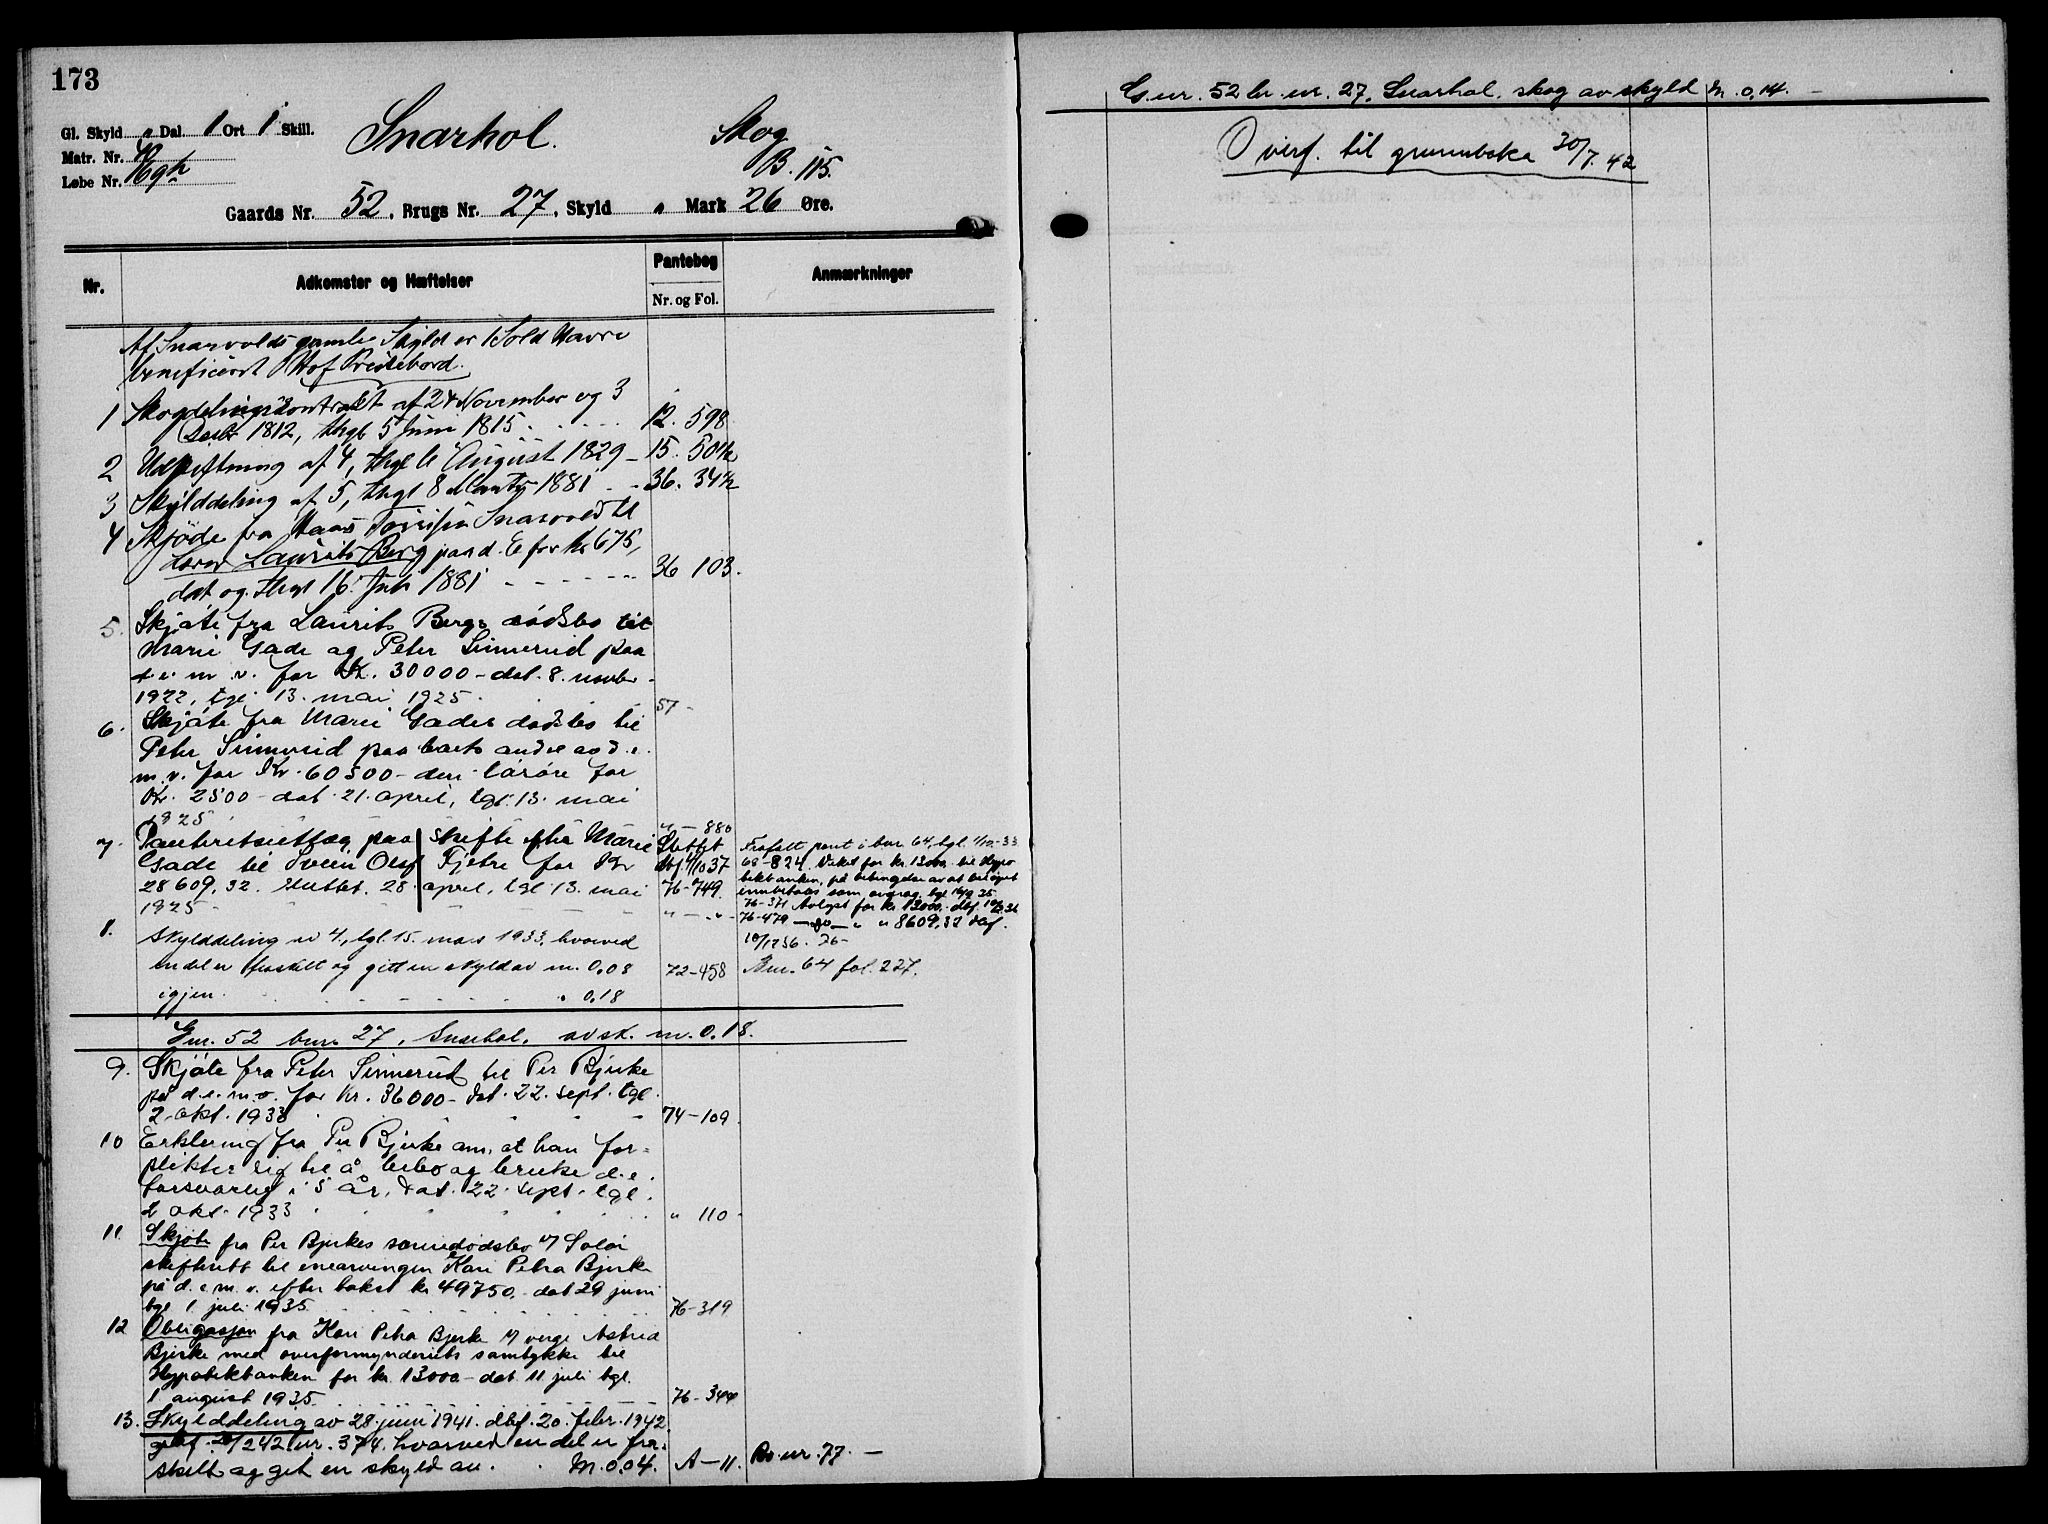 173
Gl. Skyld " Dal. 1 Ort 1 Skill.
Snarhol. Skog
Matr. Nr.
B. 115.
Løbe Nr.
Gaards Nr. 52, Brugs Nr. 27, Skyld " Mark 26 Øre.
Nr. Adkomster og Hæftelser Pantebog Anmærkninger
Nr. og Fol.
Af Snarvolds gamle Skyld er 1 Sold Havre
beneficeret Hof Prestebord.
1 Skogdelingscontract af 24 November og 3
Decbr 1812, thgl 5 Juni 1815 12. 598
2 Udskiftning af 4, thgl 6 August 1829 15. 504
3 Skylddeling af 5, thgl 8 Marts 1881 36. 34
4 Skjøde fra Snarvold til
Laurits Berg paa d. E for Kr 675,
dat og thgl 16 Juli 1881 36 103.
5. Skjøte fra Laurits Bergs dødsbo til
Marie Gade og Peter Sinnerud paa
d. e. m. v. for Kr. 30000 - dat. 8. novbr
1922, tgl 13. mai 1925 57 -
6. Skjøte fra Marie Gades dødsbo til
Peter Sinnerud paa andel av d. e.
m. v. for Kr. 60500 - den løsøre for
Kr. 2500 - dat. 21. april, tgl. 13. mai
1925 " - 880
7. Panteretsutlæg paa skifte efter Marie
Gade til Svein Olaf Fjetre for Kr
28609,32. sluttet. 28. april, tgl 13. mai
1925
Slettet
76-749.
" - " -
Frafalt pant i bnr 64, tgl. 1/10-33
68-824. Veket for kr. 13000,- til Hypo
tekbanken, på betingelse av at beløpet
innbetales som avdrag, tgl 35
76-371 Avlyst for kr. 13000,- dbf. 36
76-479 - do - " " 8609,32 dbf.
8. Skylddeling av 4., tgl. 15. mars 1933, hvorved
en del er fraskilt og gitt en skyld av m. 0,08 72-458 Bnr. 64 fol. 227.
igjen " 0,18
Gnr. 52 bnr 27, Snarhol, av sk. m. 0.18.
9. Skjøte fra Peter Sinnerud til Per Bjerke
på d. e. m. v. for Kr. 36000 - dat. 22. sept. tgl.
2. okt. 1933 74-109
10 Erklering fra Per Bjerke om, at han for=
plikter sig til å bebo og bruke d. e.
forsvarlig i 5 år, dat. 22. sept. tgl.
2 okt. 1933 " 110
11. Skjøte fra Per Bjerkes særiedødsbo v/ Solør
skifterett til enearvingen Kari Petra Bjerke
på d. e. m. v. efter takst kr 49750,- dat 29 juni
tgl 1. juli 1935 76-319
12 Obligasjon fra Kari Petra Bjerke v/ verge Astrid
Bjerke med overformynderiets samtykke til
Hypotekbanken for kr. 13000 - dat 11 juli tgl.
1 august 1935 76-344
13. Skylddeling av 28. juni 1941. dbf. 20. febr. 1942
nr. 374. hvorved en del er fra=
skilt og git en skyld av. M. 0,04. A-11. Br. nr. 77. -
G. nr. 52 br. nr. 27, Snarhol. skog av skyld M. 0,14. -
Overf. til grunnboka 30/7. 42